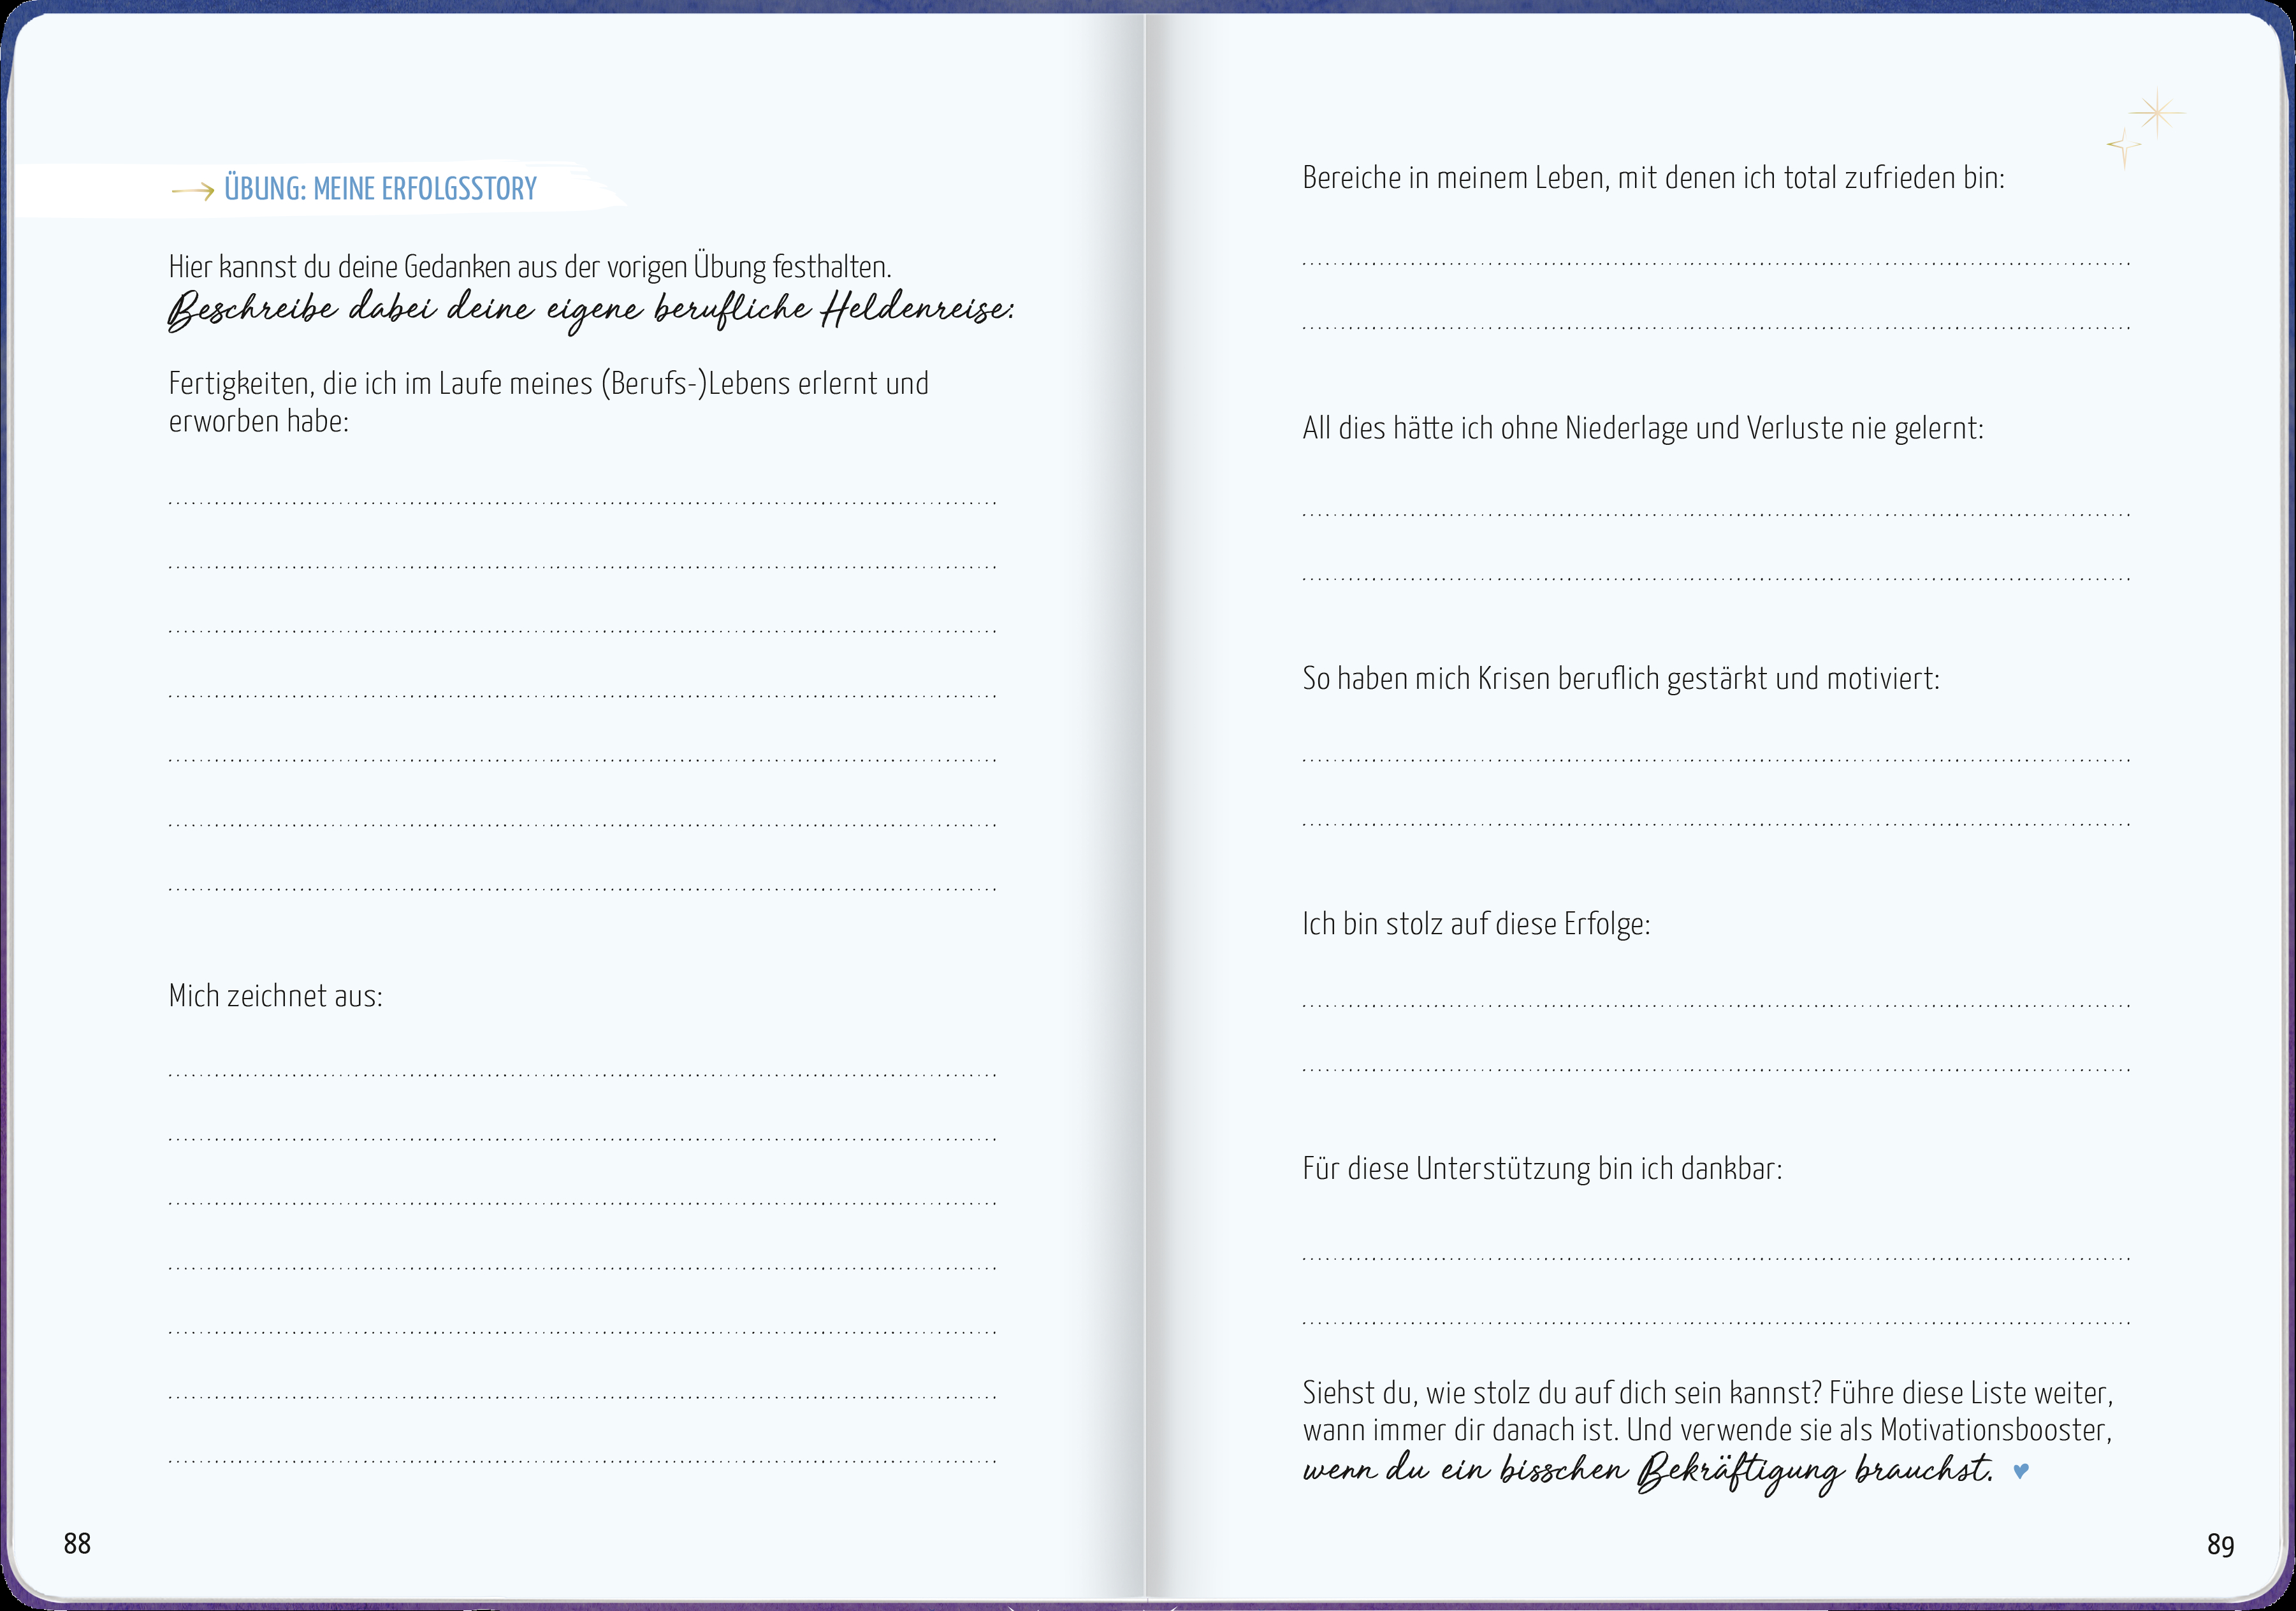 ÜBUNG: MEINE ERFOLGSSTORY
Hier kannst du deine Gedanken aus der vorigen Übung festhalten.
Beschreibe dabei deine eigene berufliche Heldenreise:
Fertigkeiten, die ich im Laufe meines (Berufs-)Lebens erlernt und
erworben habe:
Mich zeichnet aus:
88
Bereiche in meinem Leben, mit denen ich total zufrieden bin:
All dies hätte ich ohne Niederlage und Verluste nie gelernt:
So haben mich Krisen beruflich gestärkt und motiviert:
Ich bin stolz auf diese Erfolge:
Für diese Unterstützung bin ich dankbar:
Siehst du, wie stolz du auf dich sein kannst? Führe diese Liste weiter,
wann immer dir danach ist. Und verwende sie als Motivationsbooster,
wenn du ein bisschen Bekräftigung brauchst.
89